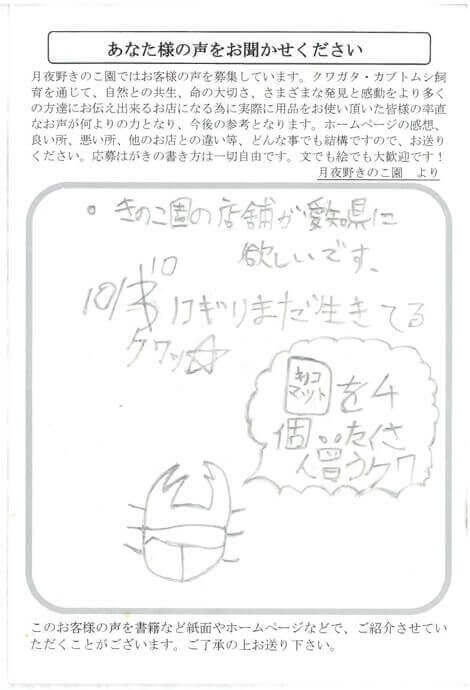 あなた様の声をお聞かせください
月夜野きのこ園ではお客様の声を募集しています。クワガタ・カブトムシ飼
育を通じて、自然との共生、命の大切さ、さまざまな発見と感動をより多く
の方達にお伝え出来るお店になる為に実際に用品をお使い頂いた皆様の率直
なお声が何よりの力となり、今後の参考となります。ホームページの感想、
良い所、悪い所、他のお店との違い等、どんな事でも結構ですので、お送り
ください。応募はがきの書き方は一切自由です。文でも絵でも大歓迎です！
月夜野きのこ園 より
きのこ園の店舗が愛知県に
欲しいです、
10/
10
ギリまだ生きてる
クワッ☆
キノコ
マット を4
個
買うクワ
このお客様の声を書籍など紙面やホームページなどで、ご紹介させてい
ただくことがございます。ご了承の上お送り下さい。